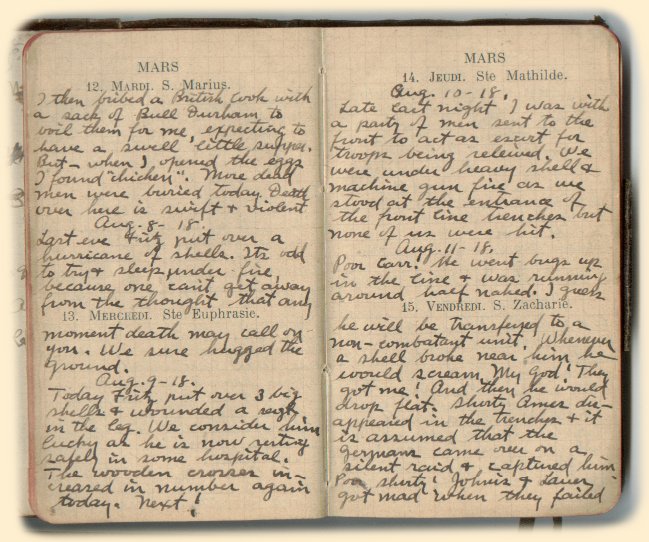 MARS
12. MARDI. S. Marius.
I then bribed a British Cook with
a sack of Bull Durham to
boil them for me, expecting to
have a swell little supper.
But - when I opened the eggs
I found "chicken". More dead
men were buried today. Death
over here is swift + violent
Aug-8-18.
Last eve Fritz put over a
hurricane of shells. Its odd
to try + sleep under fire,
because one cant get away
from the thought that any
13. MERCREDI. Ste Euphrasie.
moment death may call on
you. We sure hugged the
ground.
Aug-9-18.
Today Fritz put over 3 big
shells + wounded a
in the leg. We consider him
lucky as he is now resting
safely in some hospital.
The wooden crosses in-
creased in number again
today. Next!
MARS
14. JEUDI. Ste Mathilde.
Aug. 10-18.
Late last night I was with
a party of men sent to the
front to act as escort for
troops being releived. We
were under heavy shell +
machine gun fire as we
stood at the entrance of
the front line trenches but
none of us were hit.
Aug-11-18.
Poor Carr! He went bugs up
in the line + was running
around half naked. I guess
15. VENDREDI. S. Zacharie.
he will be transfered to a
non-combatant unit. Whenever
a shell broke near him he
would scream, My god! They
got me! And then he would
drop flat. Shorty Ames dis-
appeared in the trenches + it
is assumed that the
germans came over on a
silent raid + captured him
Poor Shorty! Johns +
got mad when they failed